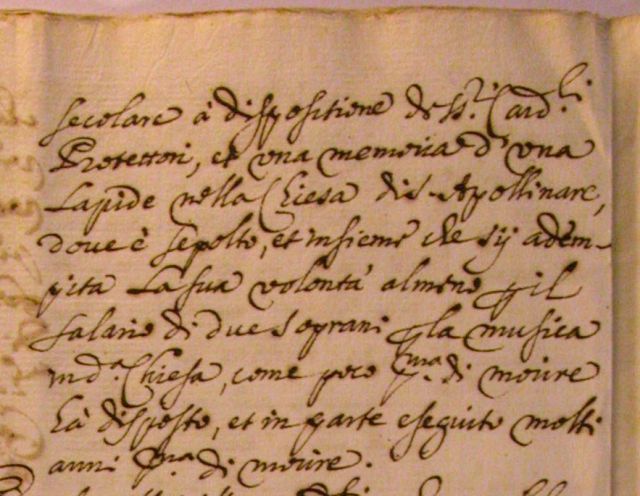 secolare à dispositione de SS.ri Card.li
Protettori, et una memoria d'una
Lapide nella Chiesa di S. Apollinare,
dove è sepolto, et insieme che sij adem-
pita La sua volontà almeno p il
salario di due soprani p la musica
in d.a Chiesa, come poco p.ma di morire
hà disposto, et in parte eseguito molti
anni p.ma di morire.